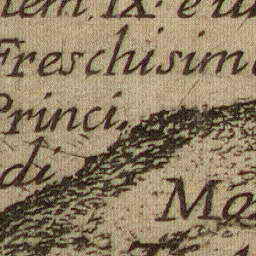 tem. IX. e
Freschisim
Princi.
di
Mo